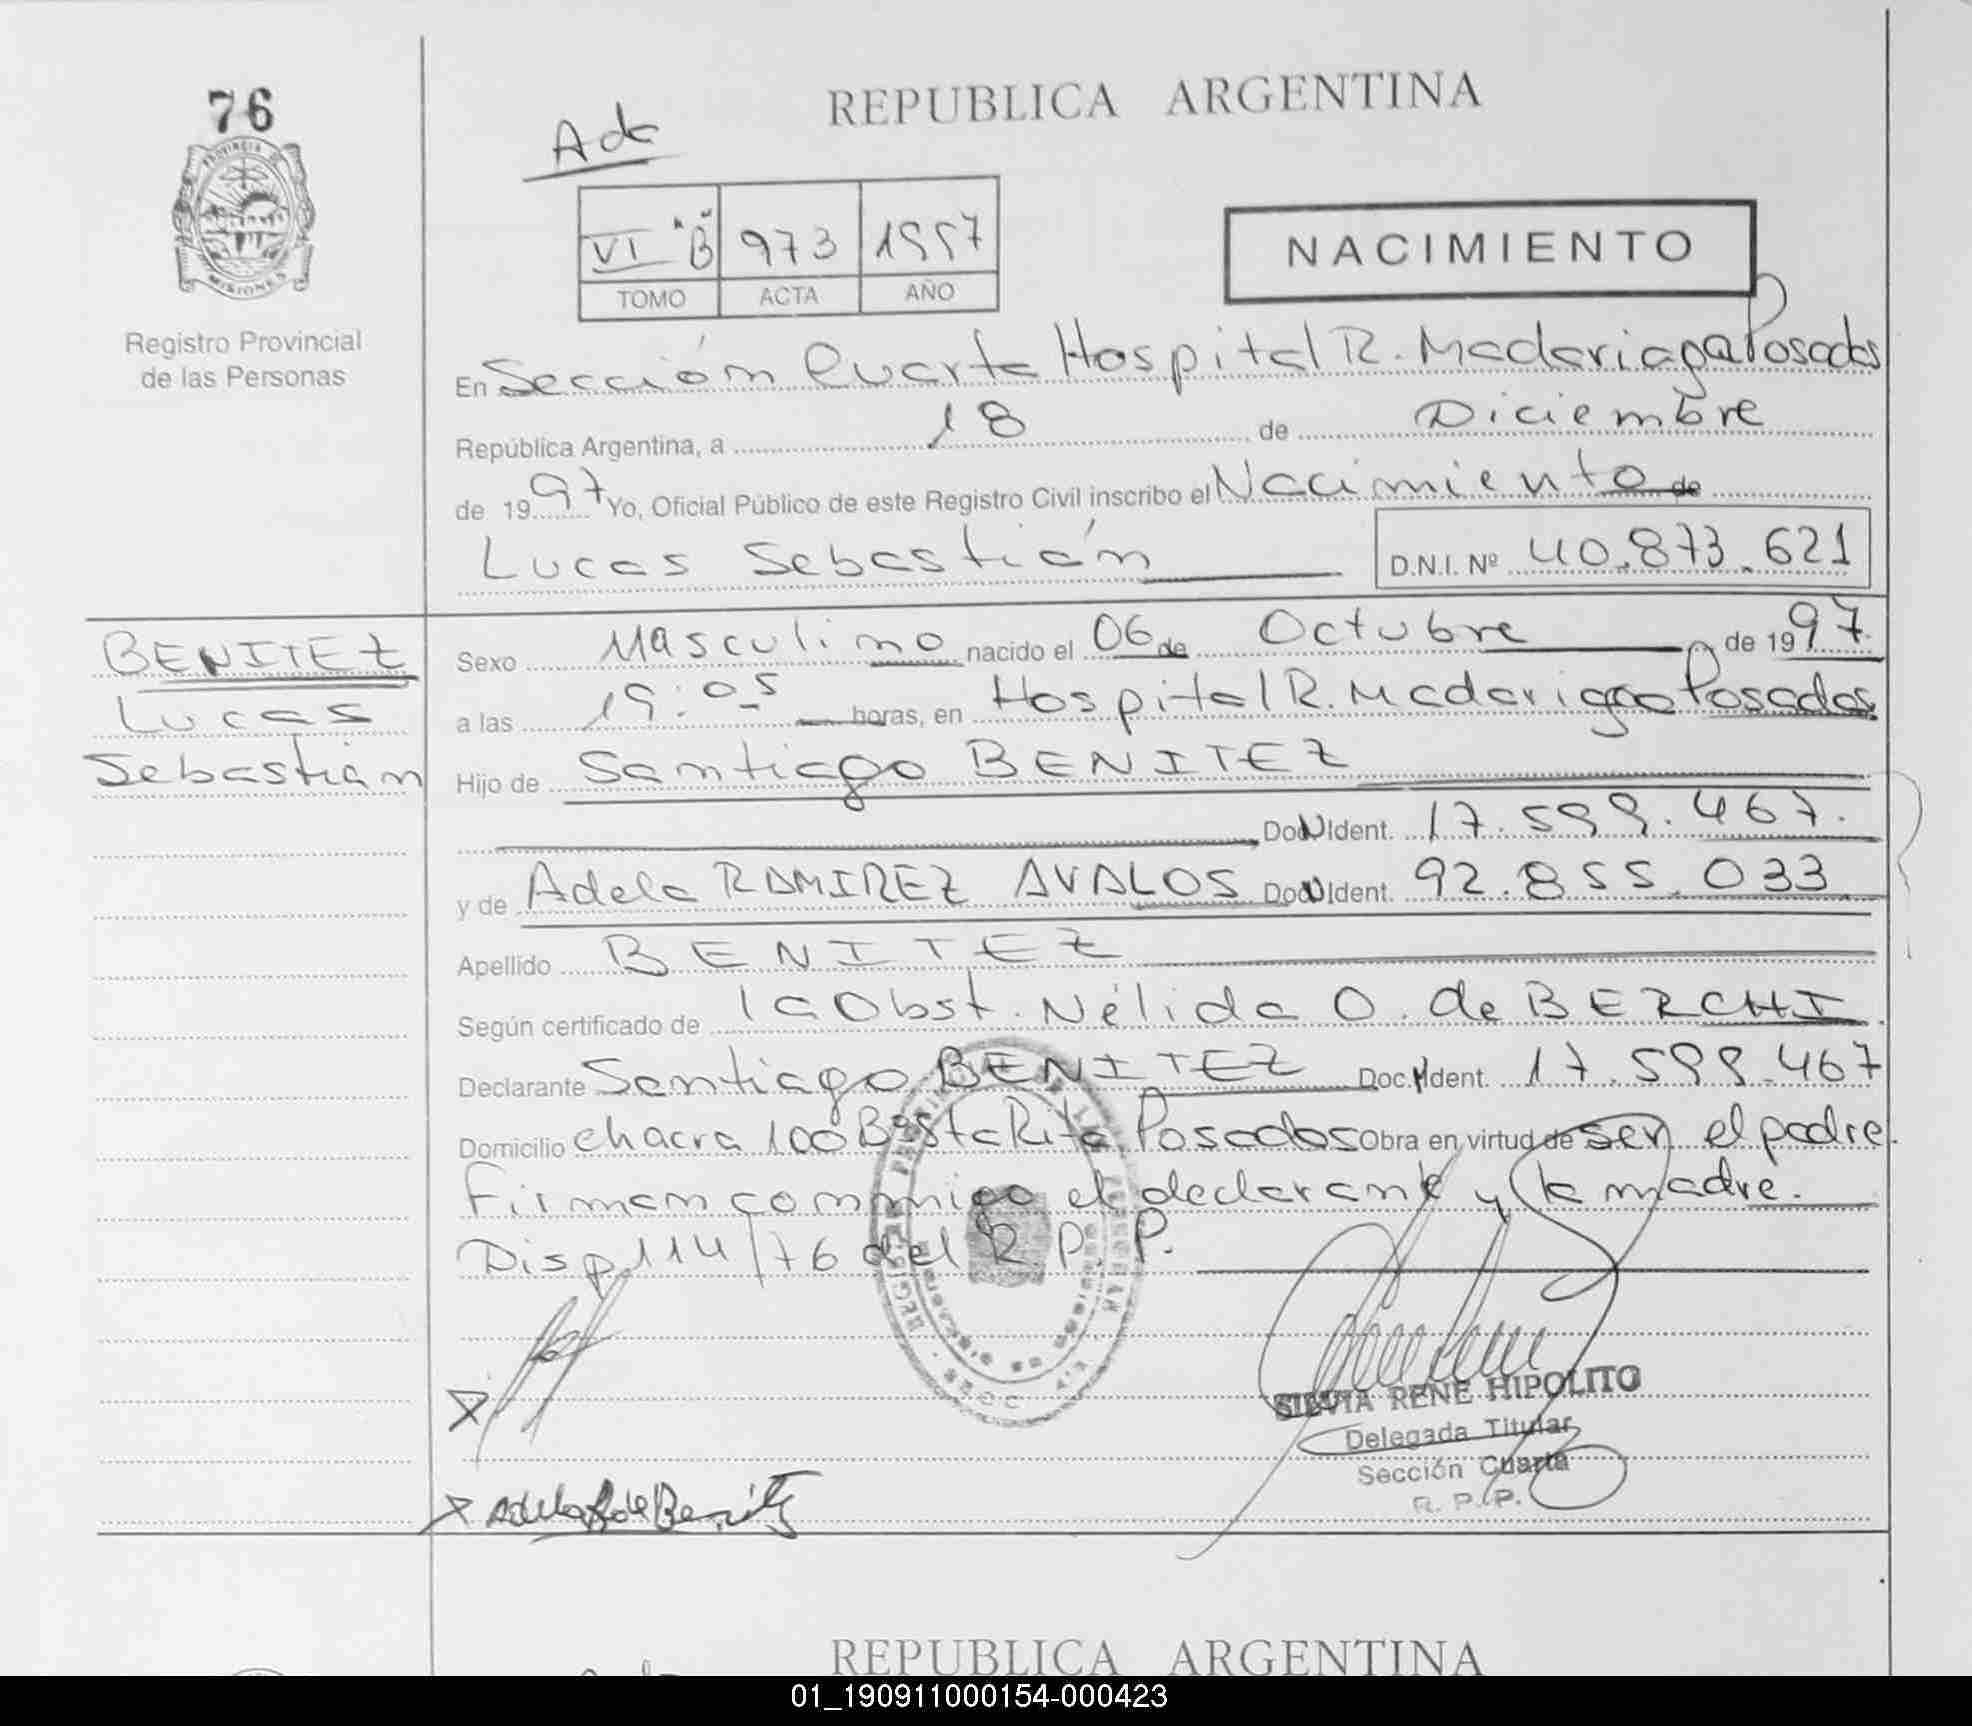 76
PROVINCIA DE
MISIONES
Registro Provincial
de las Personas
REPUBLICA ARGENTINA
VI "B" 973 1997
TOMO ACTA AÑO
NACIMIENTO
En Sección Cuarta Hospital R. Madariaga Posadas
República Argentina, a 18 de Diciembre
de 1997 Yo, Oficial Público de este Registro Civil inscribo el Nacimiento de
Lucas Sebastián D.N.I. Nº 40.873.621
BENITEZ
Lucas
Sebastián
Sexo Masculino nacido el 06 de Octubre de 1997.
a las 19:05 horas, en Hospital R. Madariaga Posadas
Hijo de Santiago BENITEZ
Ident. 17.599.467.
y de Adela RAMIREZ AVALOS Ident. 92.855.033
Apellido BENITEZ
Según certificado de la Obst. Nélida O. de BERCHI
Declarante Santiago BENITEZ Doc. Ident. 17.599.467
Domicilio chacra 100 Bº Sta Rita Posadas Obra en virtud de ser el padre
Firman conmigo el declarante y la madre.
Disp 114/76 del R.P.P.
SILVIA RENE HIPOLITO
Delegada Titular
Sección Cuarta
R. P. P.
Adela R de Benitez
REPUBLICA ARGENTINA
01_190911000154-000423